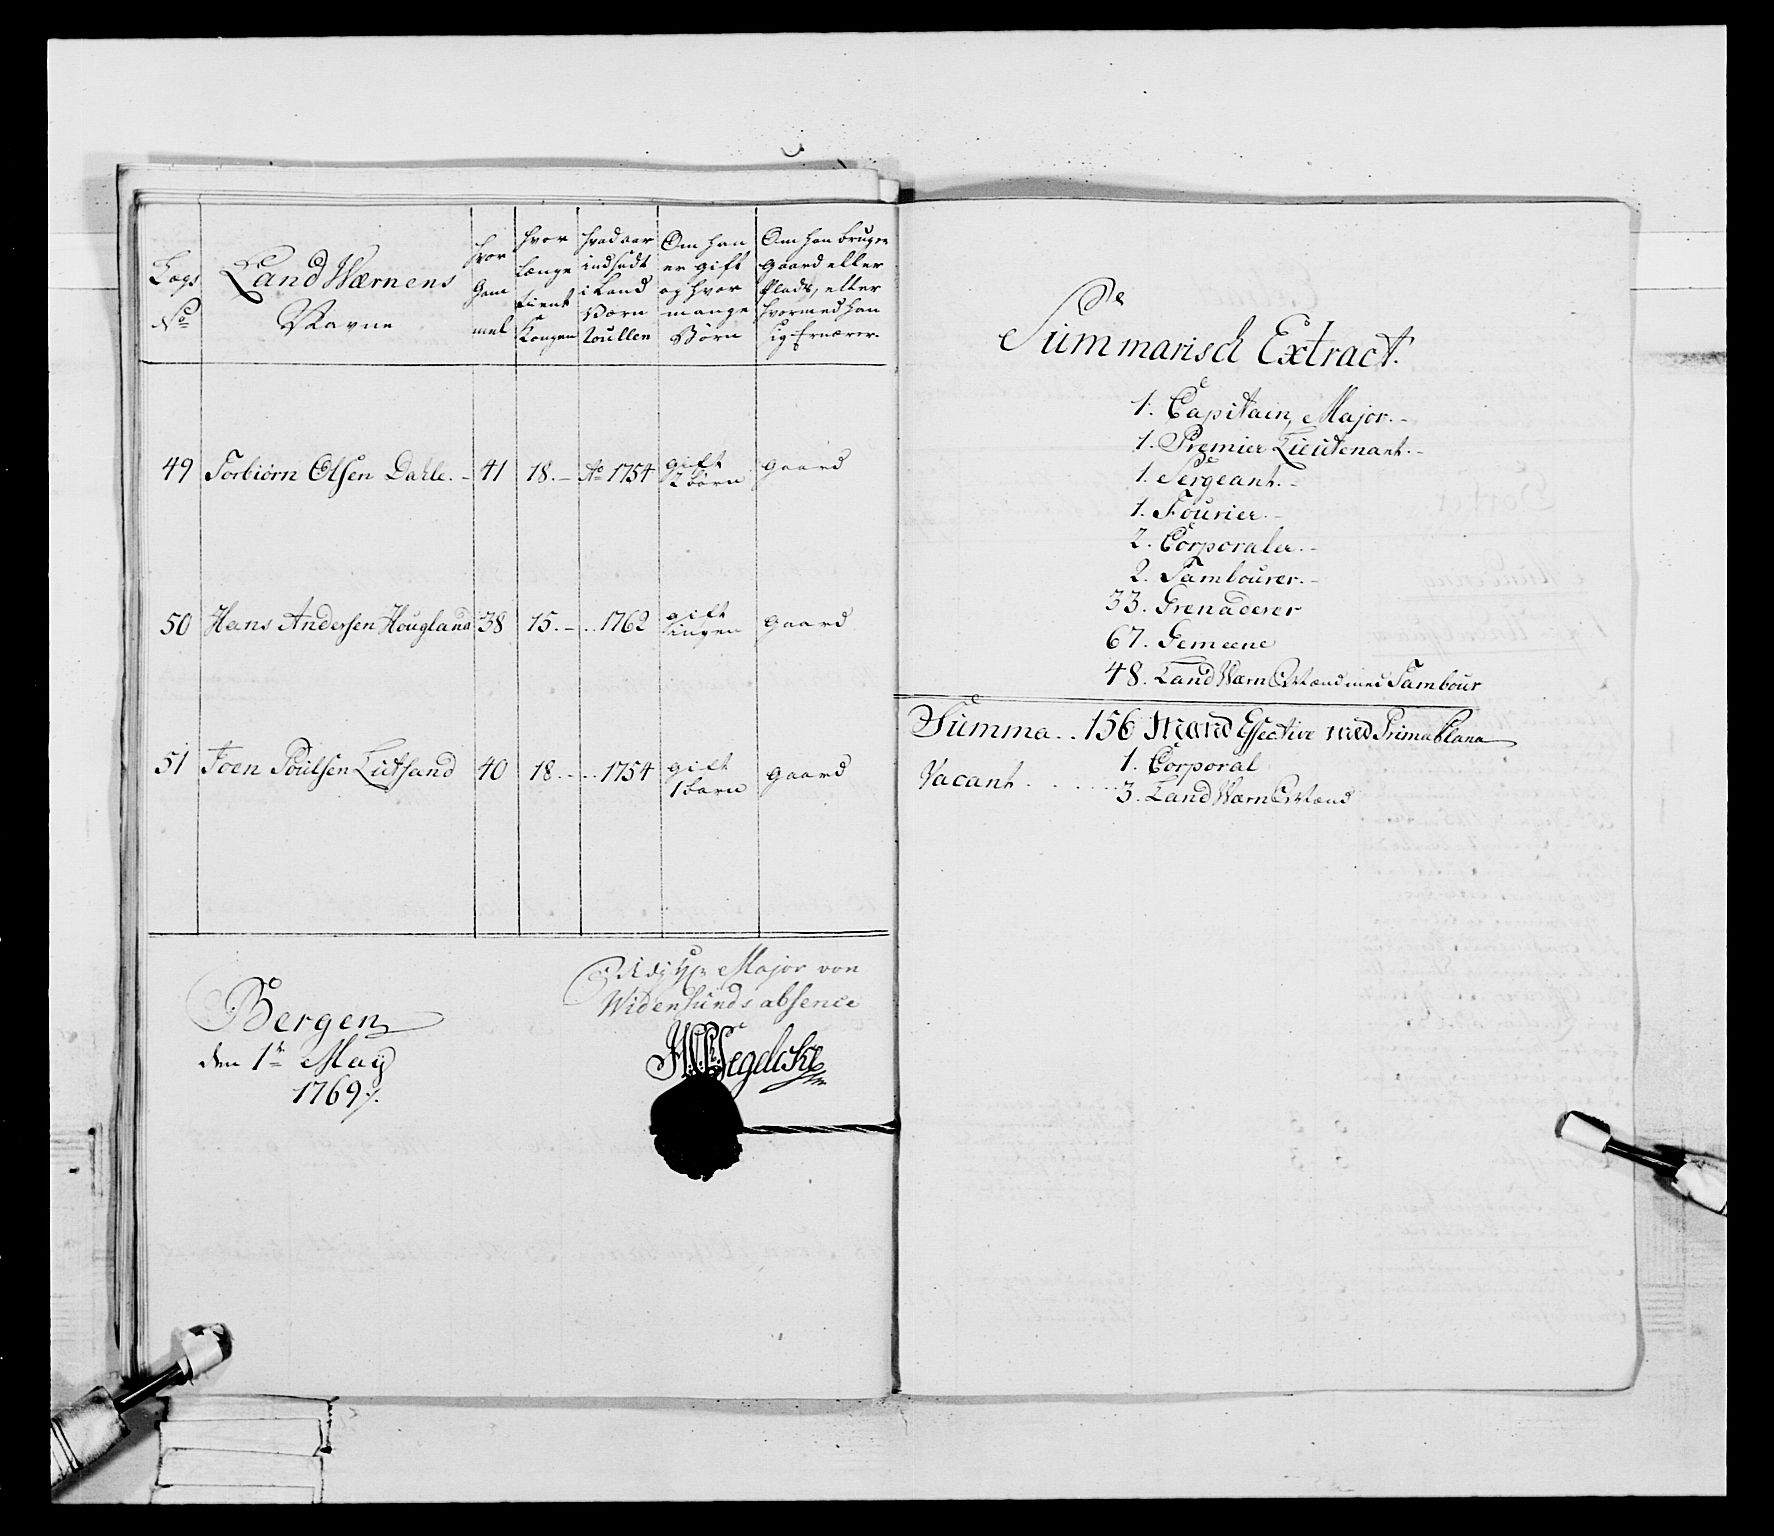 Lægs No
Land Wærnens Navne
hvor Gam mel
hvor Længe tient Kongen
hvad aar indsadt i Land Værn Roullen
Om han er gift og hvor mange Børn
Om han bruger gaard eller Plads, eller hvormed han sig Ernærer.
49 Torbiørn Olsen Dahle. - 41 18. - Ao 1754 gift 2 børn gaard
50 Hans Andersen Hougland 38 15. - .. 1762 gift ingen gaard
51 Joen Poulsen Lutsand 40 18. - .. 1754 gift 1 barn gaard
Bergen
den 1te May
1769 ∕.
Major von
Widensunds absence
Summarisch Extract.
1. Capitain, Major. -
1. Premier Lieutenant. -
1. Sergeant. -
1. Fourier. -
2. Corporaler. -
2. Tambourer. -
33. Grenaderer
67. Gemeene
48. Land Wærn Mænd med Tambour
Summa .. 156 Mand Effective med Prima Plana
Vacant . . . . . . 1. Corporal
3. Land Wærn Mænd